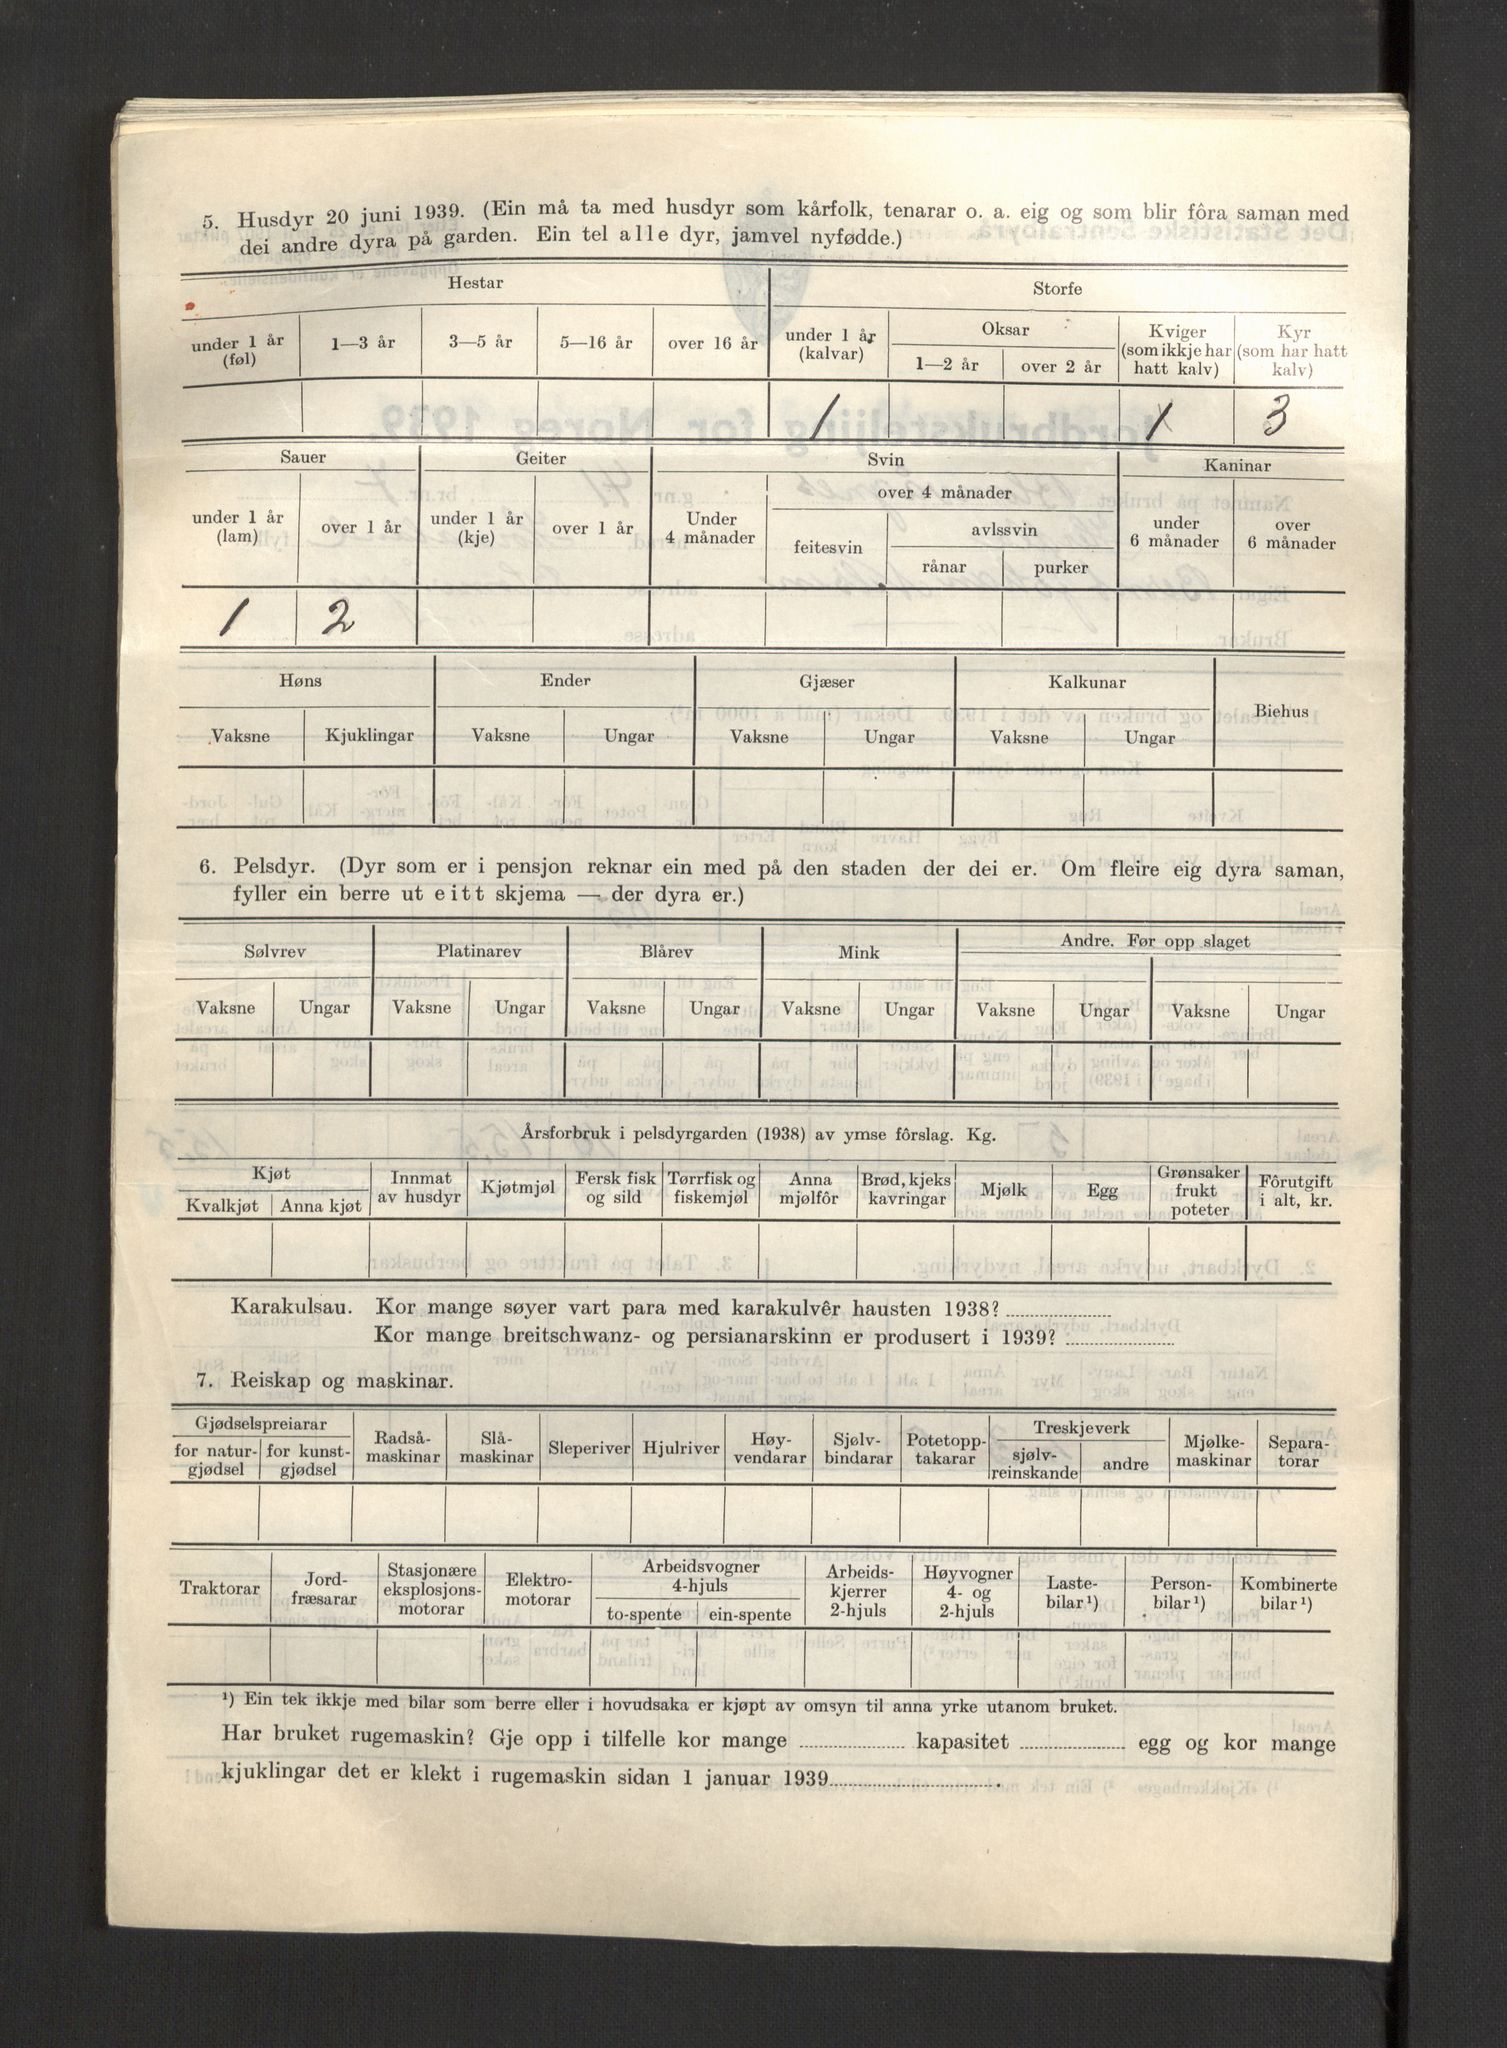 5. Husdyr 20 juni 1939. (Ein må ta med husdyr som kårfolk, tenarar o. a. eig og som blir fôra saman med
dei andre dyra på garden. Ein tel alle dyr, jamvel nyfødde.)
Hestar Storfe
under 1 år (føl) 1—3 år 3—5 år 5—16 år over 16 år under 1 år (kalvar) Oksar 1—2 år over 2 år Kviger (som ikkje har hatt kalv) Kyr (som har hatt kalv)
1 1 3
Sauer Geiter Svin Kaninar
under 1 år (lam) over 1 år under 1 år (kje) over 1 år Under 4 månader over 4 månader feitesvin avlssvin rånar purker under 6 månader over 6 månader
1 2
Høns Ender Gjæser Kalkunar Biehus
Vaksne Kjuklingar Vaksne Ungar Vaksne Ungar Vaksne Ungar
6. Pelsdyr. (Dyr som er i pensjon reknar ein med på den staden der dei er. Om fleire eig dyra saman,
fyller ein berre ut eitt skjema — der dyra er.)
Sølvrev Platinarev Blårev Mink Andre. Før opp slaget
Vaksne Ungar Vaksne Ungar Vaksne Ungar Vaksne Ungar Vaksne Ungar Vaksne Ungar
Årsforbruk i pelsdyrgarden (1938) av ymse fôrslag. Kg.
Kjøt Kvalkjøt Anna kjøt Innmat av husdyr Kjøtmjøl Fersk fisk og sild Tørrfisk og fiskemjøl Anna mjølfôr Brød, kjeks kavringar Mjølk Egg Grønsaker frukt poteter Fôrutgift i alt, kr.
Karakulsau. Kor mange søyer vart para med karakulvêr hausten 1938?
Kor mange breitschwanz- og persianarskinn er produsert i 1939?
7. Reiskap og maskinar.
Gjødselspreiarar for natur-gjødsel for kunst-gjødsel Radså-maskinar Slå-maskinar Sleperiver Hjulriver Høy-vendarar Sjølv-bindarar Potetopp-takarar Treskjeverk sjølv-reinskande andre Mjølke-maskinar Separa-torar
Traktorar Jord-fræsarar Stasjonære eksplosjons-motorar Elektro-motorar Arbeidsvogner 4-hjuls to-spente ein-spente Arbeids-kjerrer 2-hjuls Høyvogner 4- og 2-hjuls Laste-bilar¹) Person-bilar¹) Kombinerte bilar¹)
¹) Ein tek ikkje med bilar som berre eller i hovudsaka er kjøpt av omsyn til anna yrke utanom bruket.
Har bruket rugemaskin? Gje opp i tilfelle kor mange kapasitet egg og kor mange
kjuklingar det er klekt i rugemaskin sidan 1 januar 1939.